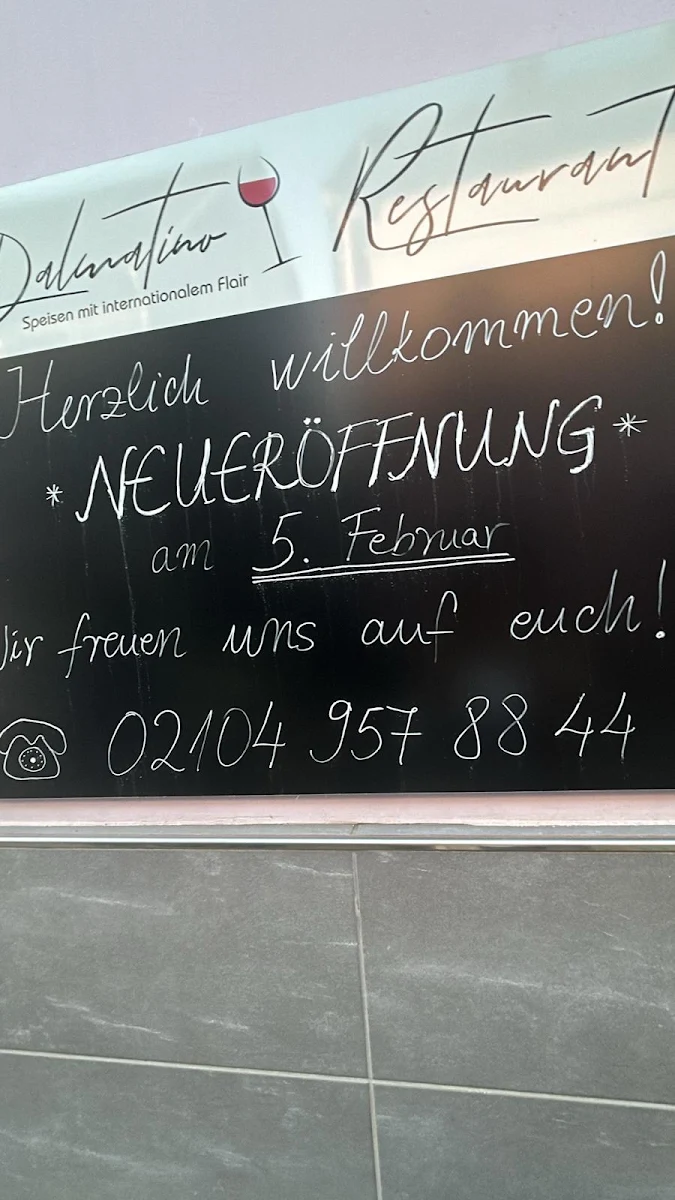 Dalmatino Restaurant
Speisen mit internationalem Flair
Herzlich willkommen!
* NEUERÖFFNUNG *
am 5. Februar
Wir freuen uns auf euch!
02104 957 88 44